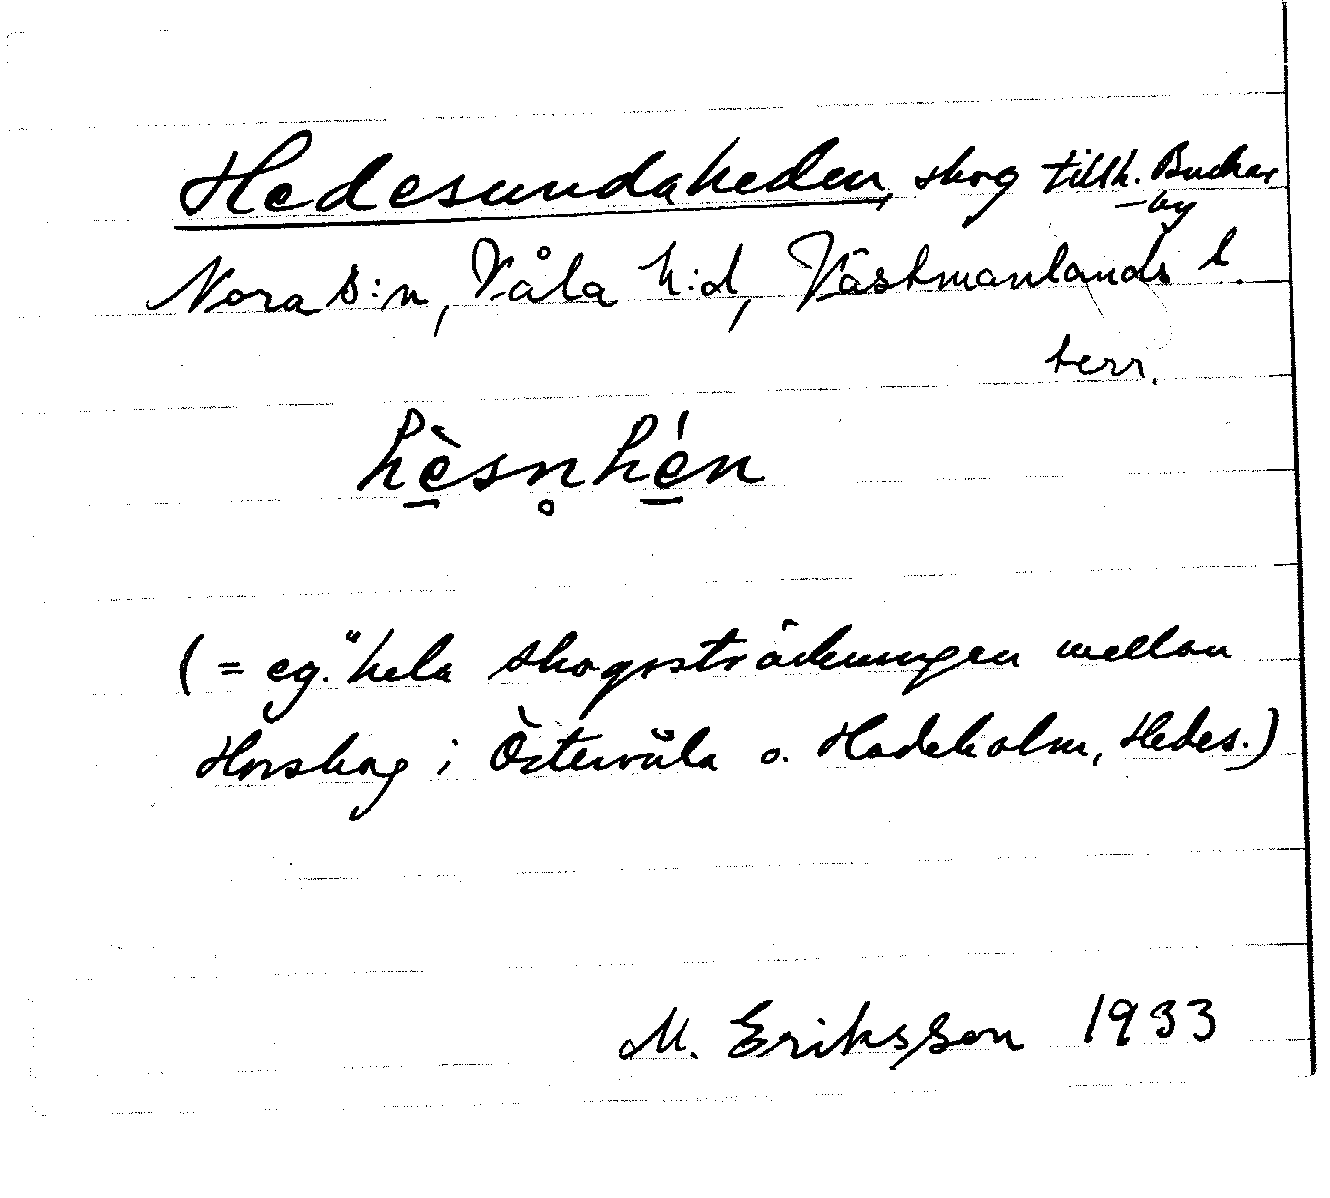 Hedesundaheden, skog tillh. Buckar-
by
Nora s:n, Våla h:d, Västmanlands l.
terr.
hè̱sn̥hé̱n
(= eg. "hela skogssträckningen mellan
Horskog i Östervåla o. Hadeholm, Hedes.)
M. Eriksson 1933